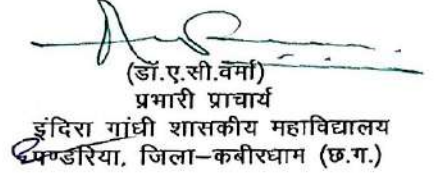 (डॉ.ए.सी.वर्मा)
प्रभारी प्राचार्य
इंदिरा गांधी शासकीय महाविद्यालय
पण्डरिया, जिला–कबीरधाम (छ.ग.)